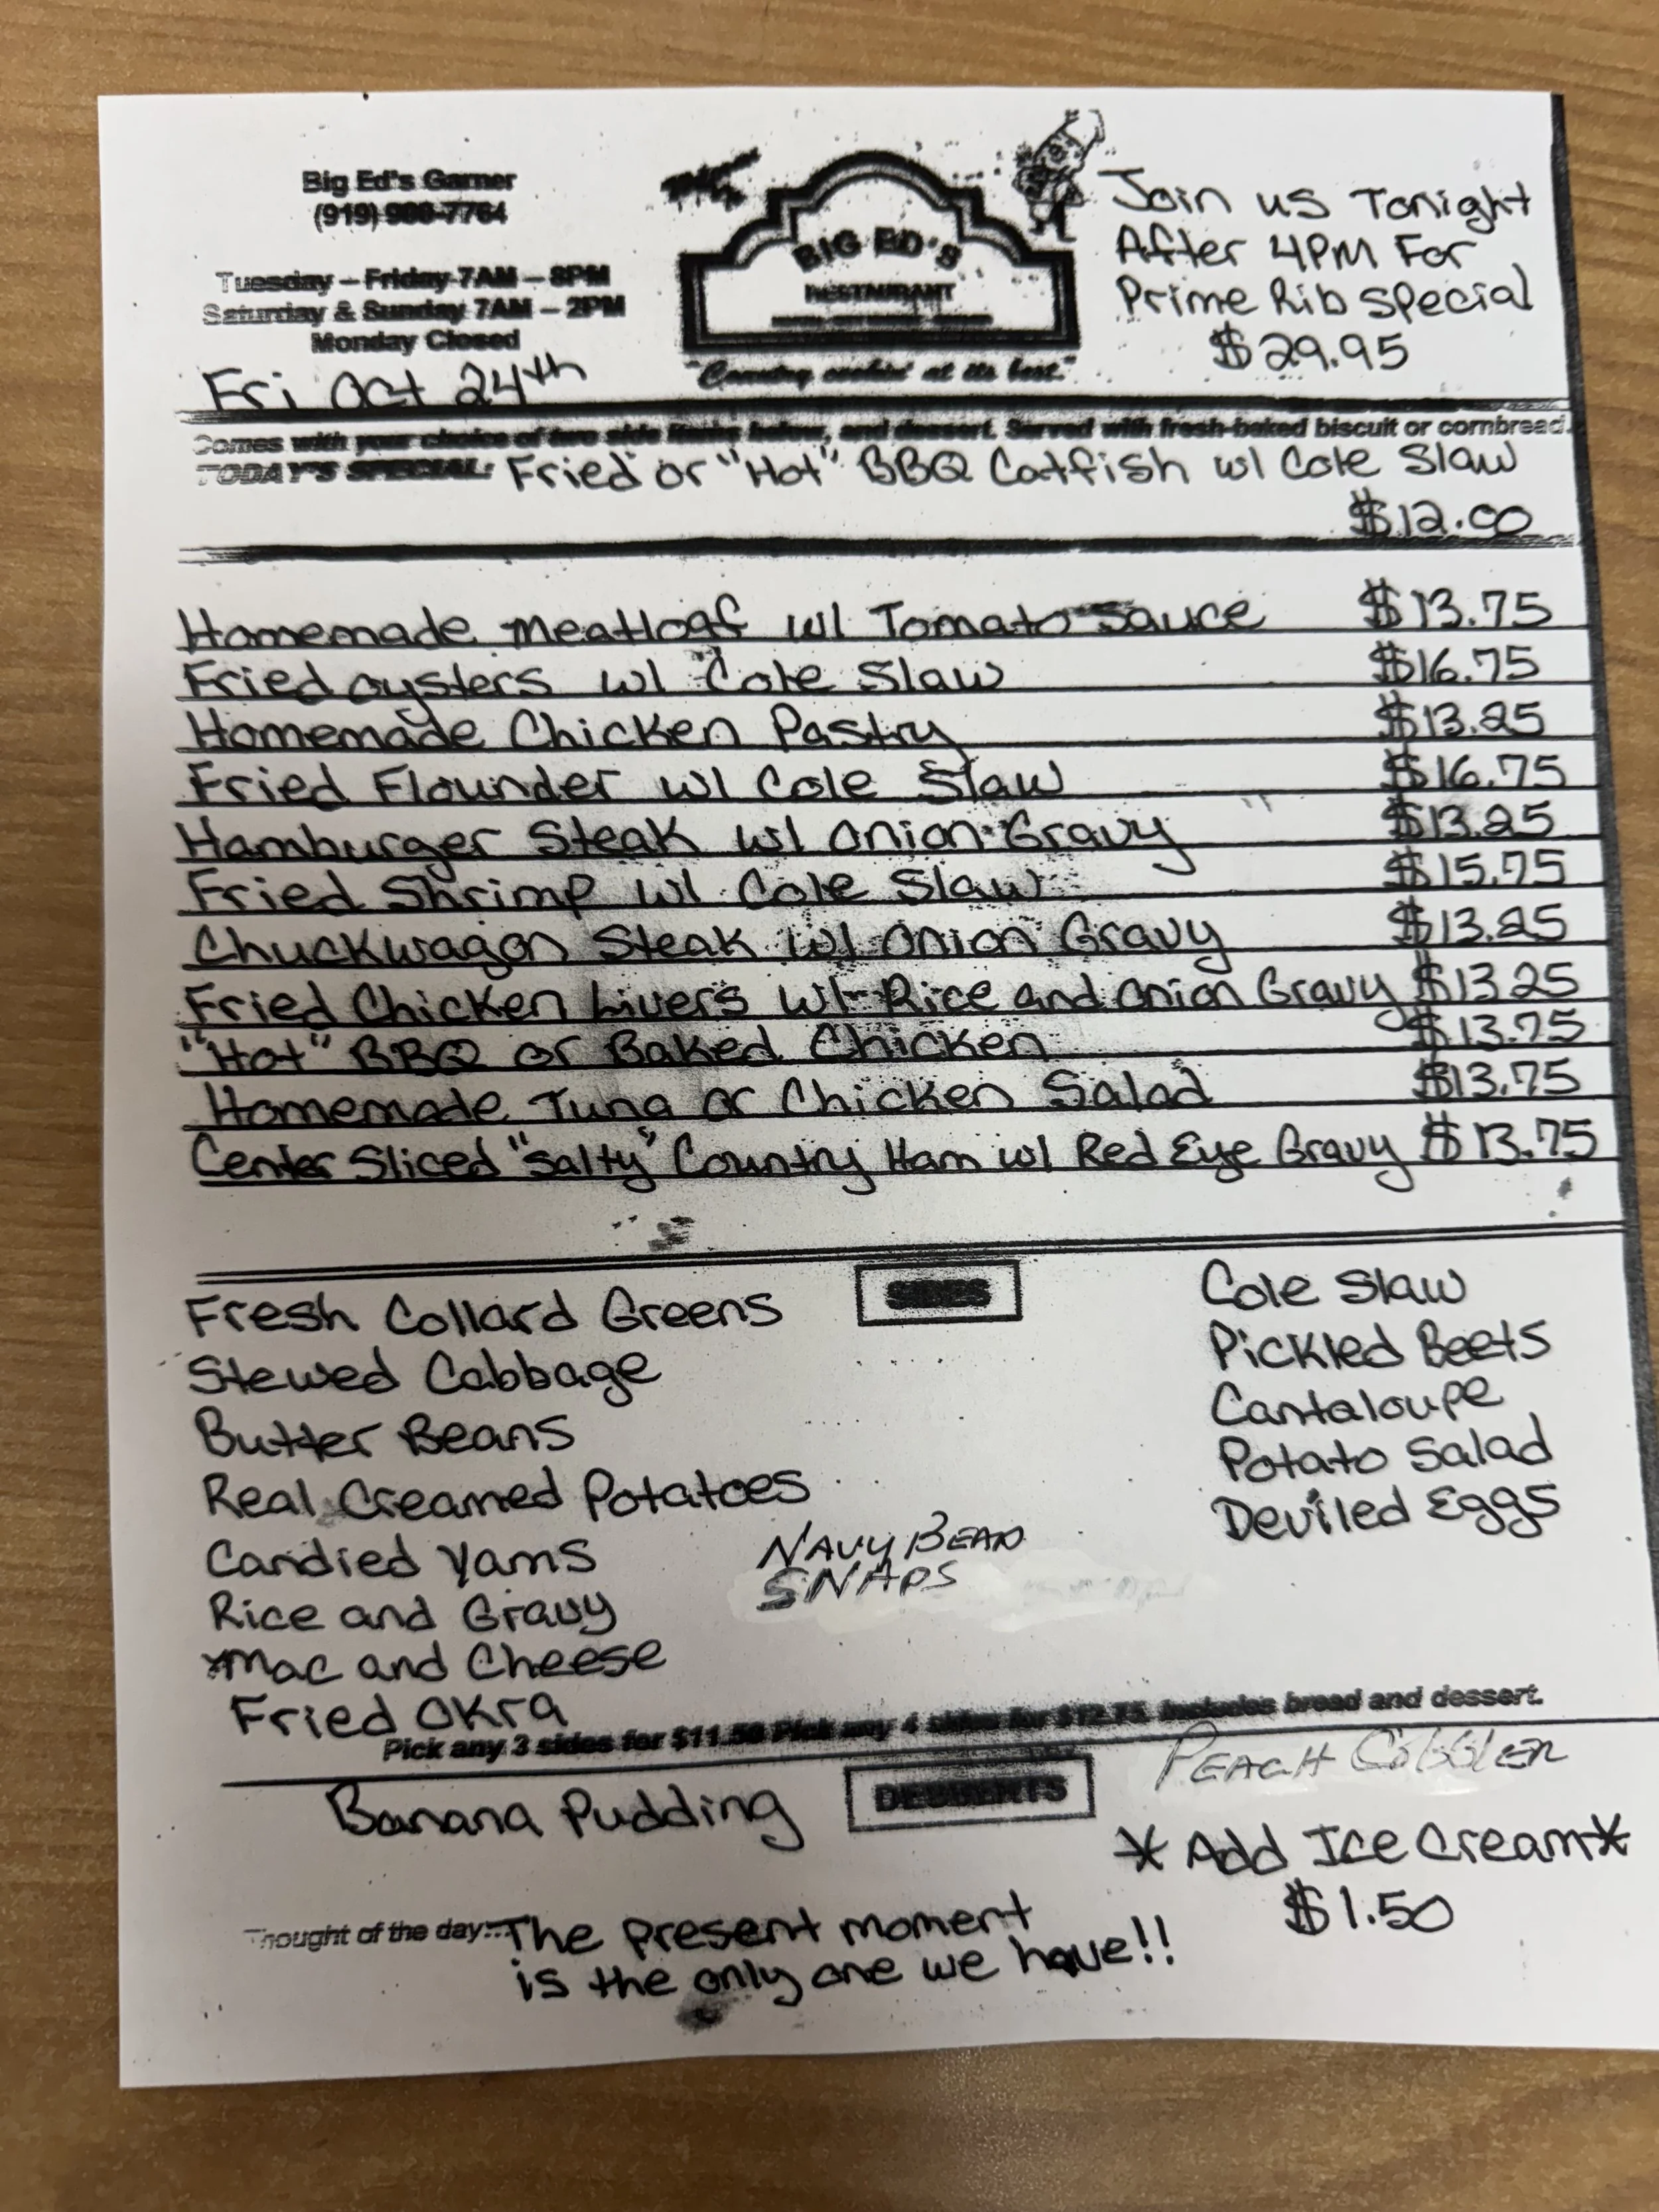 Big Ed's Garner
(919) 7764
Tuesday – Friday 7AM – 8PM
Saturday & Sunday 7AM – 2PM
Monday Closed
Fri Oct 24th
BIG ED'S
RESTAURANT
"Country cookin' at its best."
Join us Tonight
After 4PM For
Prime Rib Special
$29.95
Comes with your choice of two side items below, and dessert. Served with fresh-baked biscuit or cornbread.
TODAY'S SPECIAL: Fried or "Hot" BBQ Catfish w/ Cole Slaw
$12.00
Homemade Meatloaf w/ Tomato Sauce $13.75
Fried oysters w/ Cole Slaw $16.75
Homemade Chicken Pastry $13.25
Fried Flounder w/ Cole Slaw $16.75
Hamburger Steak w/ Onion Gravy $13.25
Fried Shrimp w/ Cole Slaw $15.75
Chuckwagon Steak w/ Onion Gravy $13.25
Fried Chicken Livers w/ Rice and Onion Gravy $13.25
"Hot" BBQ or Baked Chicken $13.75
Homemade Tuna or Chicken Salad $13.75
Center Sliced "Salty" Country Ham w/ Red Eye Gravy $13.75
SIDES
Fresh Collard Greens
Stewed Cabbage
Butter Beans
Real Creamed Potatoes
Candied Yams
Rice and Gravy
*Mac and Cheese
Fried Okra
NAVY BEAN
SNAPS
Cole Slaw
Pickled Beets
Cantaloupe
Potato Salad
Deviled Eggs
Pick any 3 sides for $11.50 Pick any 4 sides for $12.75. Includes bread and dessert.
DESSERTS
Banana Pudding
PEACH COBBLER
*Add Ice Cream*
$1.50
Thought of the day: The present moment
is the only one we have!!